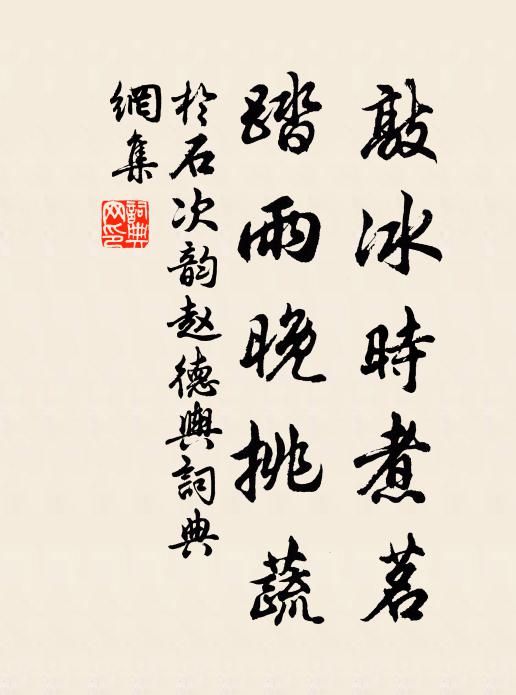 敲冰時煮茗
踏雨晚挑蔬
於石次韵赵德興詞典
網集
詞典网印